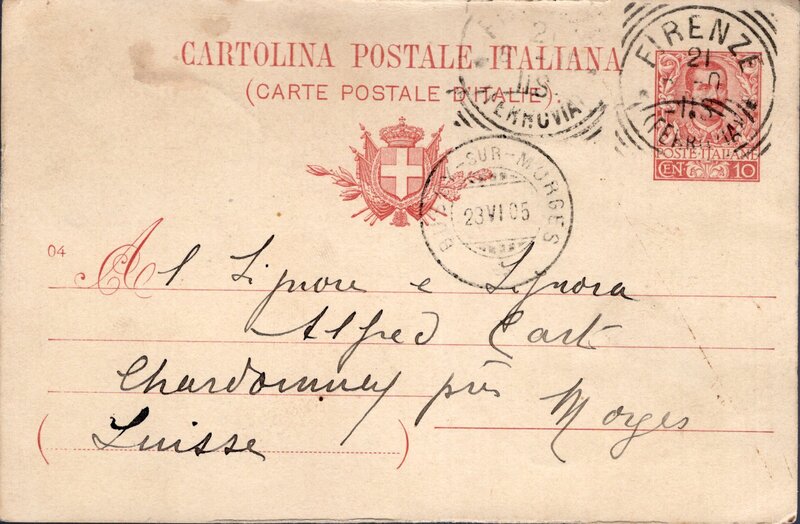 CARTOLINA POSTALE ITALIANA
(CARTE POSTALE D'ITALIE)
FIRENZE
21
(FERROVIA)
FIRENZE
21
(FERROVIA)
POSTE ITALIANE
CEN. 10
SUR-MORGES
23 VI 05
04
Al Signore e Signora
Alfred Cart
Chardonney près Morges
(Suisse)